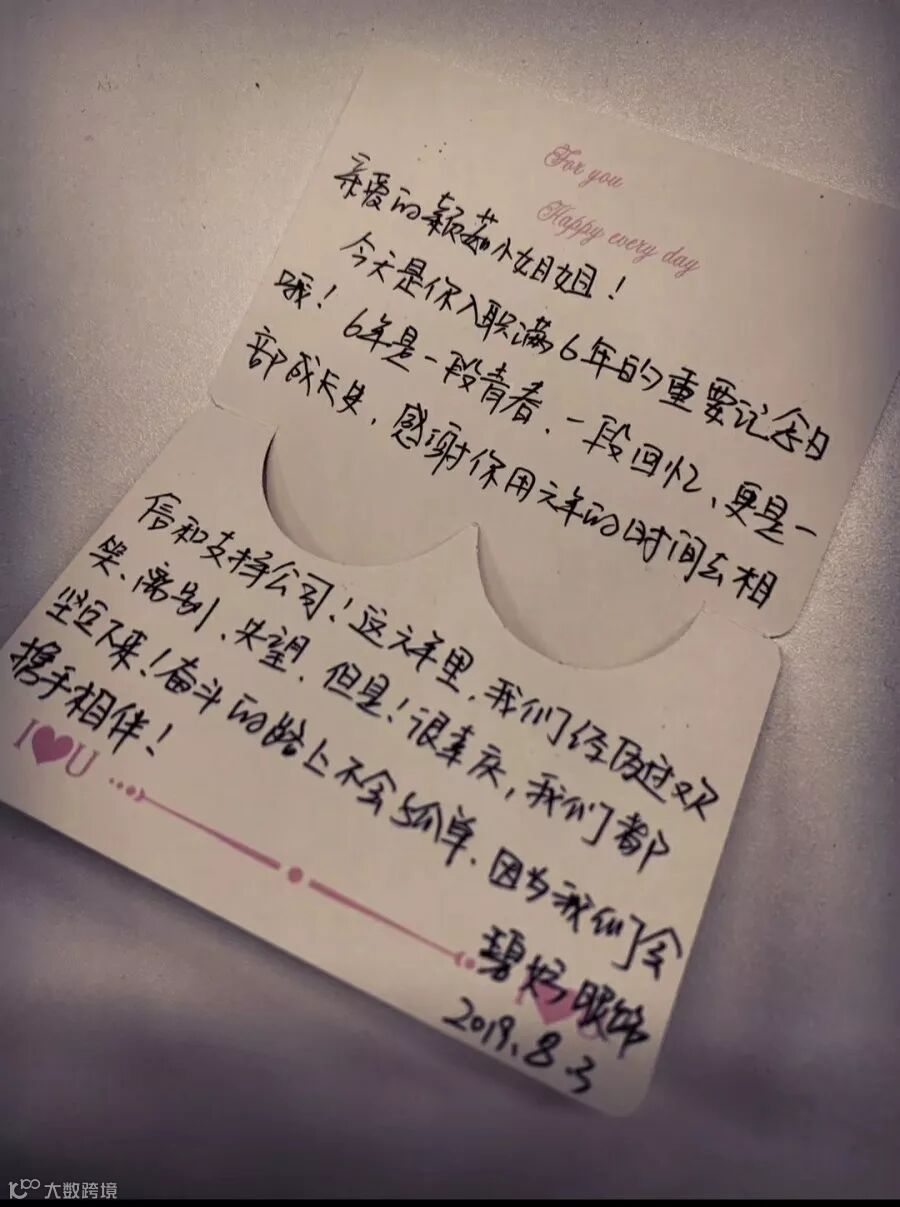 For you
Happy every day
亲爱的颖茹小姐姐！
今天是你入职满6年的重要记念日
哦！6年是一段青春、一段回忆、更是一
部成长史，感谢你用六年的时间去相
信和支持公司！这六年里，我们经历过欢
笑、离别、失望，但是！很幸庆，我们都
坚豆下来！奋斗的路上不会孤单，因为我们会
携手相伴！
I U
碧妈眼饰
2019.8.3
大数跨境